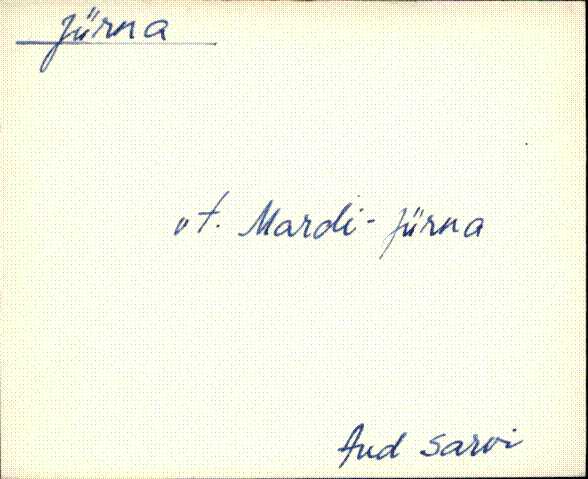 Jürna
vt. Mardi-Jürna
And Sarvi